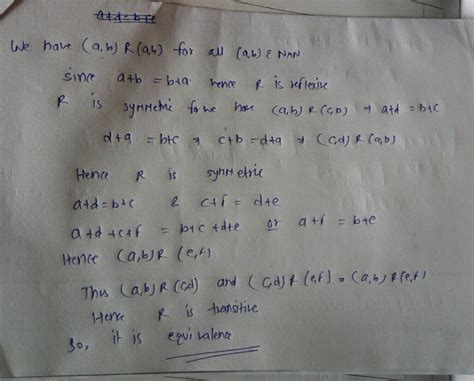 a+d=b+c
We have (a,b) R (a,b) for all (a,b) ε N×N
since a+b = b+a hence R is reflexive
R is symmetric for we have (a,b) R (c,d) ⇒ a+d = b+c
d+a = b+c ⇒ c+b = d+a ⇒ (c,d) R (a,b)
Hence R is symmetric
a+d = b+c & c+f = d+e
a+d+c+f = b+c+d+e or a+f = b+e
Hence (a,b) R (e,f)
Thus (a,b) R (c,d) and (c,d) R (e,f) ⇒ (a,b) R (e,f)
Hence R is transitive
So, it is equivalence